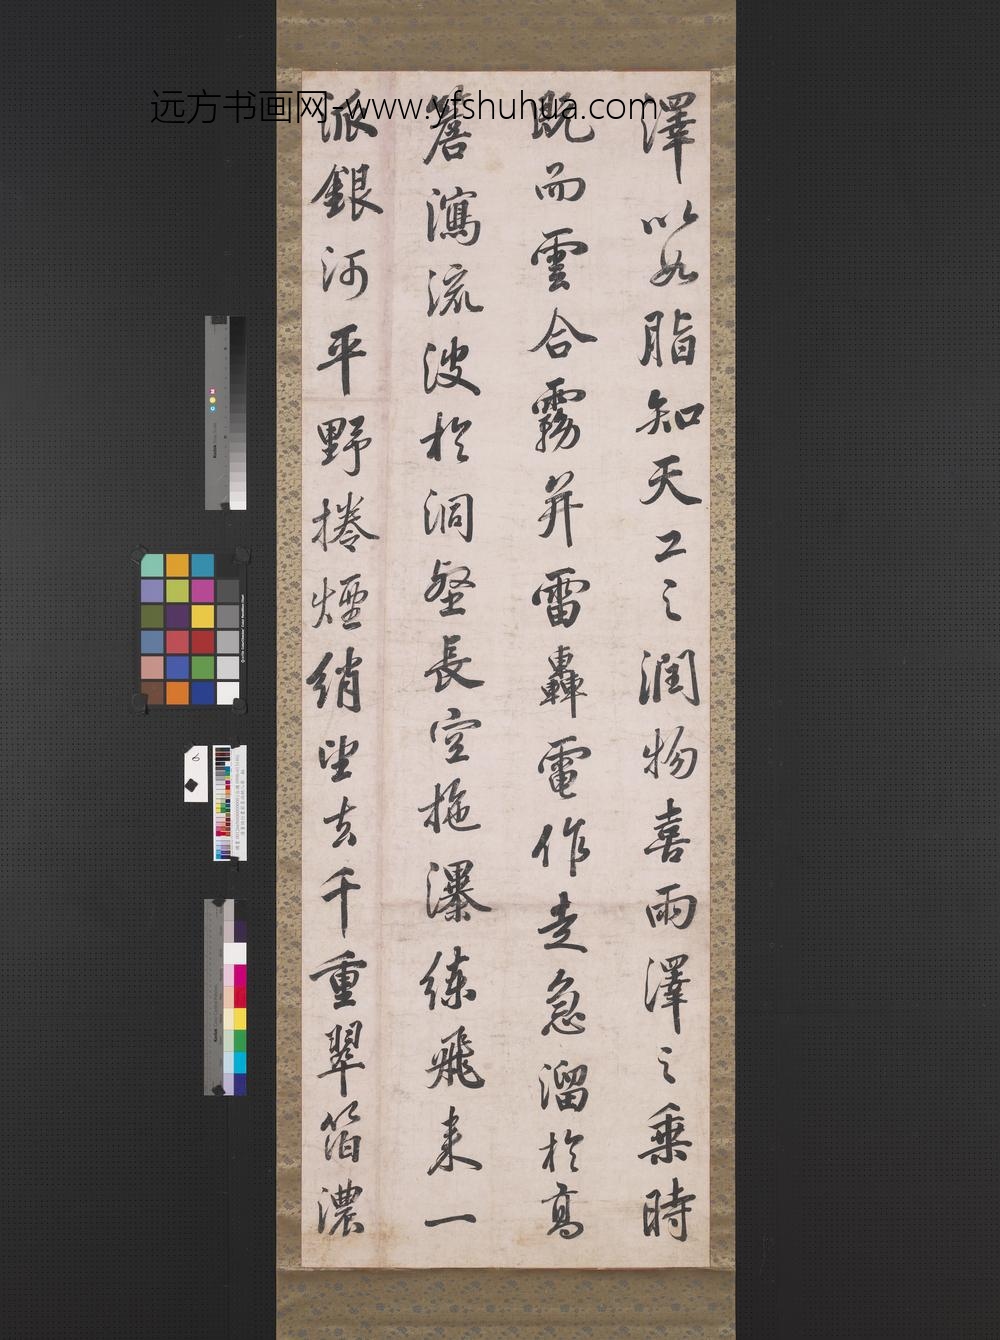 远方书画网-www.yfshuhua.com
澤以如脂知天工之潤物喜雨澤之乗時
既而雲合霧并雷轟電作走急溜於高
簷瀉流波於洞壑長空拖瀑練飛来一
派銀河平野捲煙綃望去千重翠箔濃